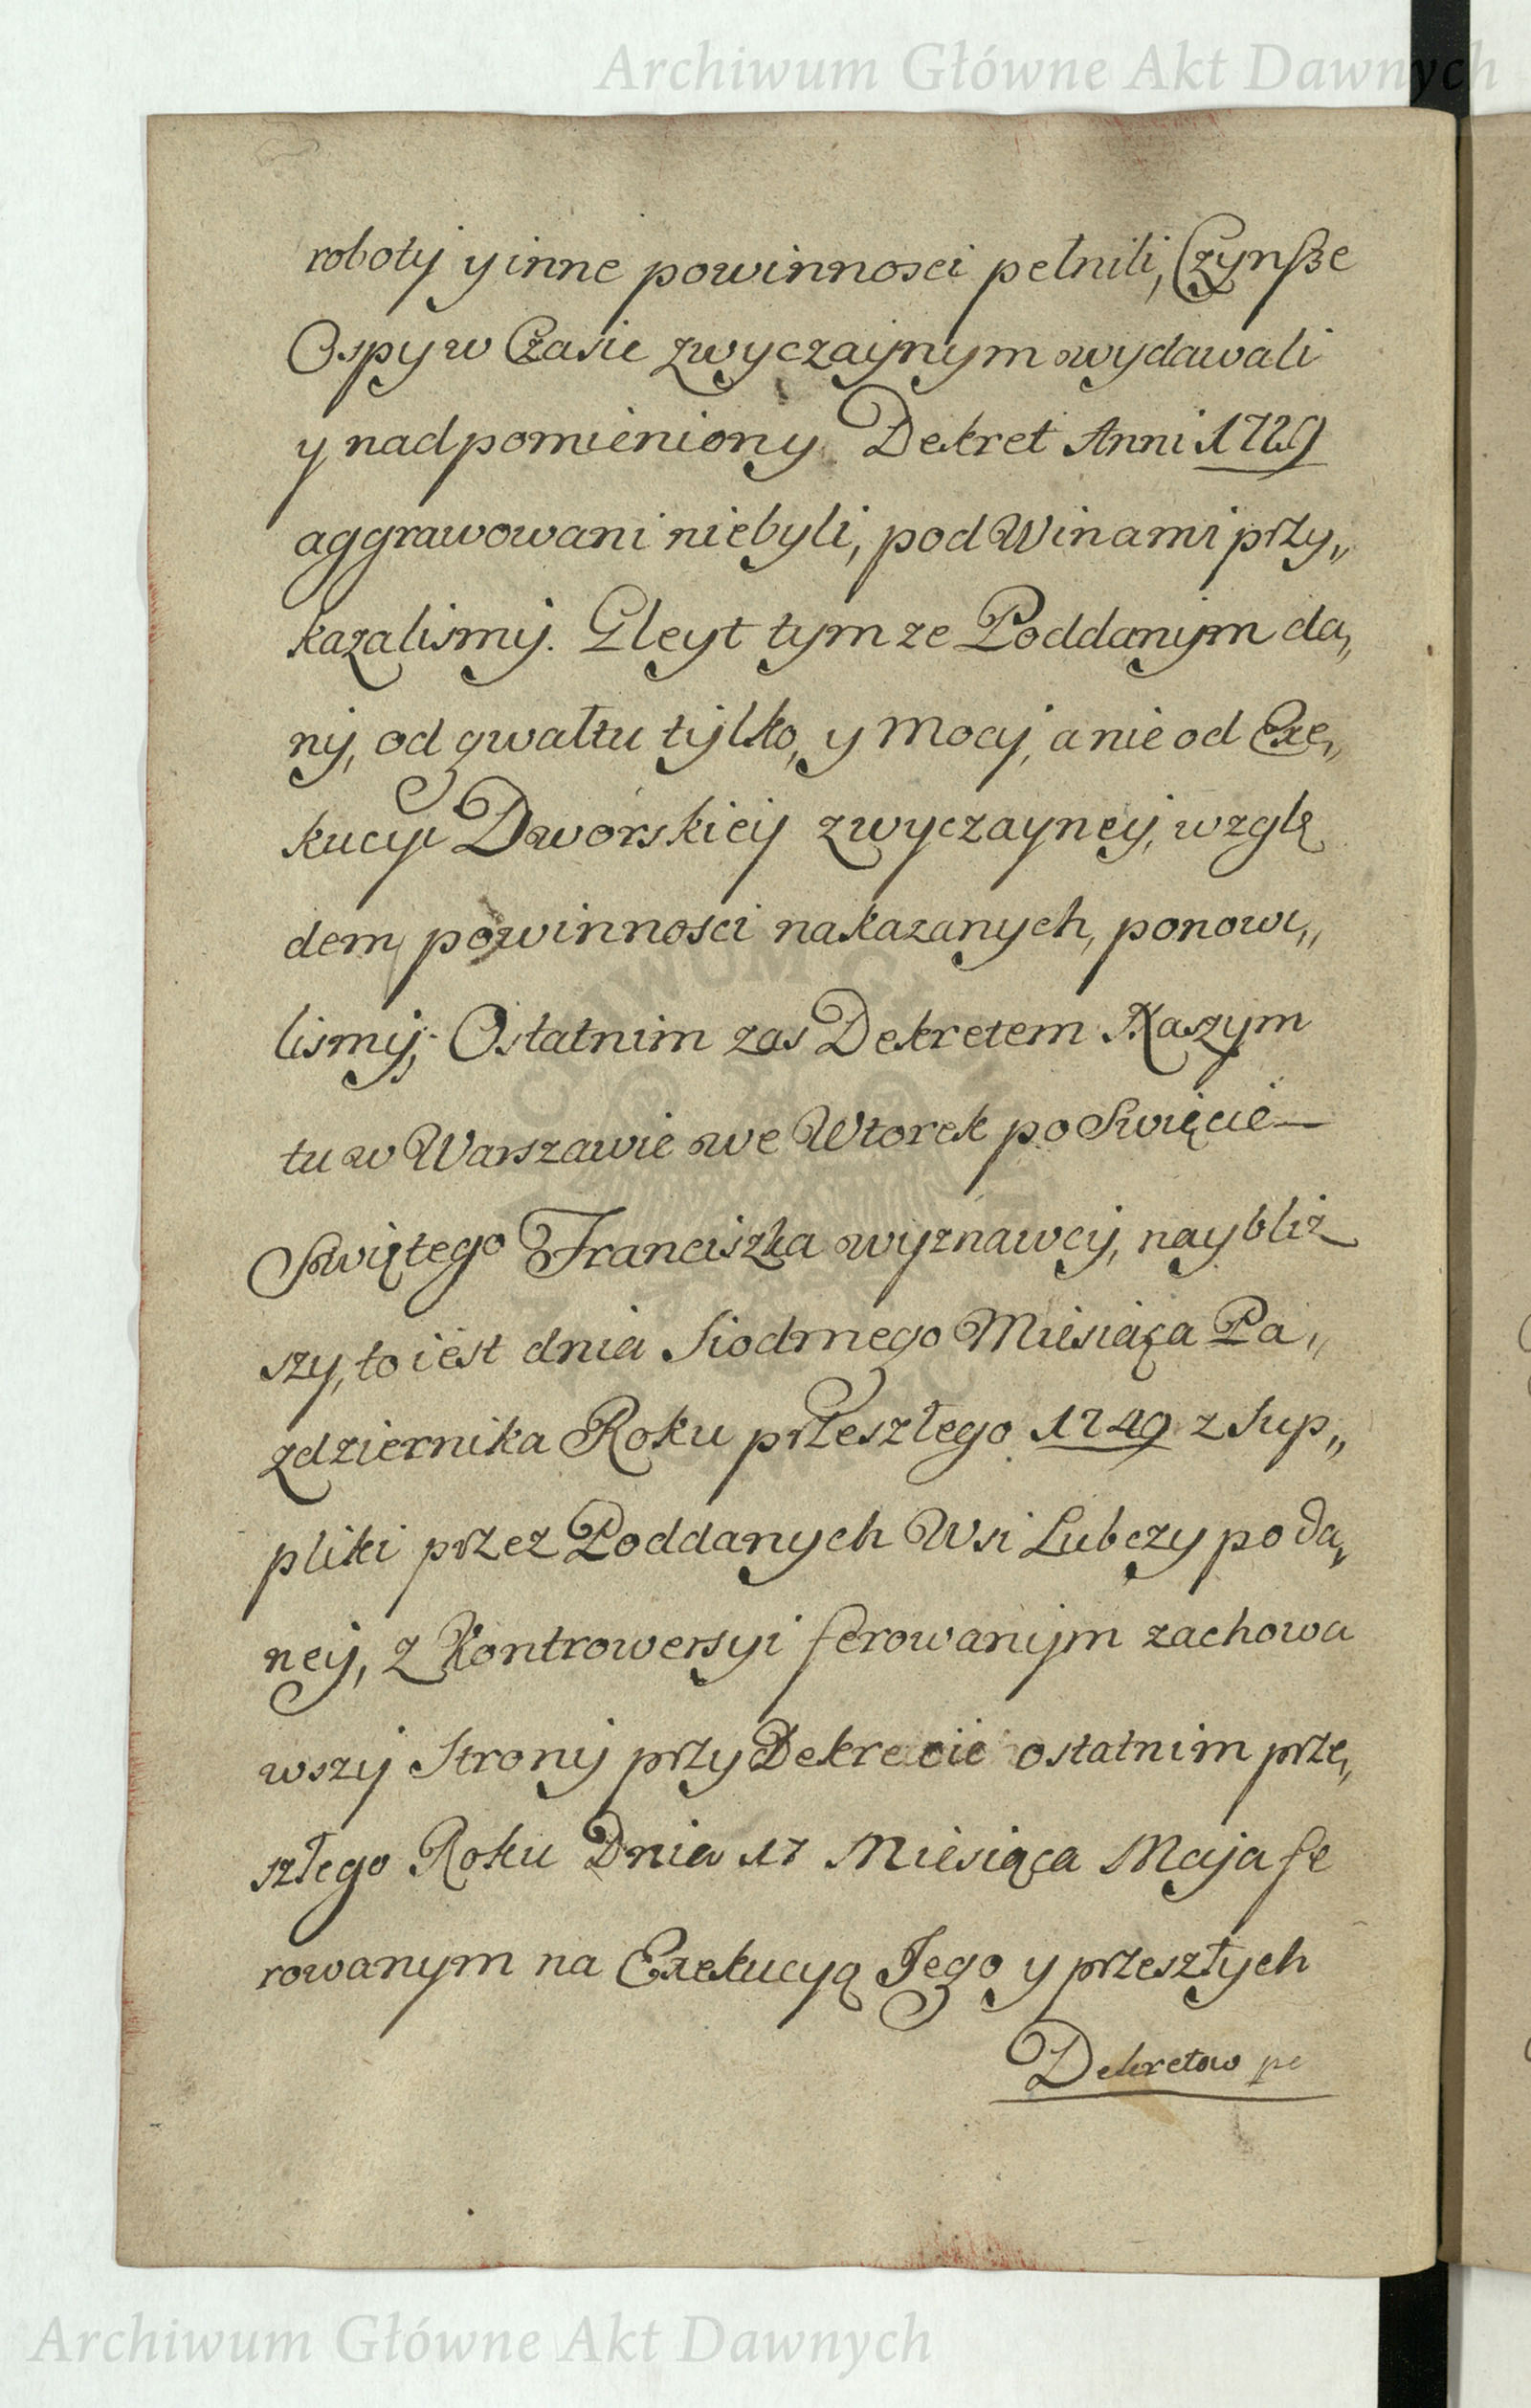 Archiwum Główne Akt Dawnych
roboty y inne powinnosci pełnili, Czynsze
Ospy w Czasie zwyczaynym wydawali
y nadpomieniony Dekret Anni 1729
aggrawowani niebyli, pod Winami przy„
kazalismy. Gleyt tym ze Poddanym da„
ny, od gwałtu tylko, y mocy, a nie od Exe„
kucyi Dworskiey zwyczayney, wzglę
dem powinnosci nakazanych, ponowi„
lismy; Ostatnim zas Dekretem Naszym
tu w Warszawie we Wtorek po Swięcie —
Swiętego Franciszka wyznawcy, naybliz
szy, to iest dnia Siodmego Miesiąca Pa„
zdziernika Roku przeszłego 1749 z Sup„
pliki przez Poddanych Wsi Lubczy poda„
ney, z Kontrowersyi ferowanym zachowa
wszy Strony przy Dekrecie ostatnim prze„
szłego Roku Dnia 17 Miesiąca Maja fe
rowanym na Exekucyą Jego y przeszłych
Dekretow pe
Archiwum Główne Akt Dawnych